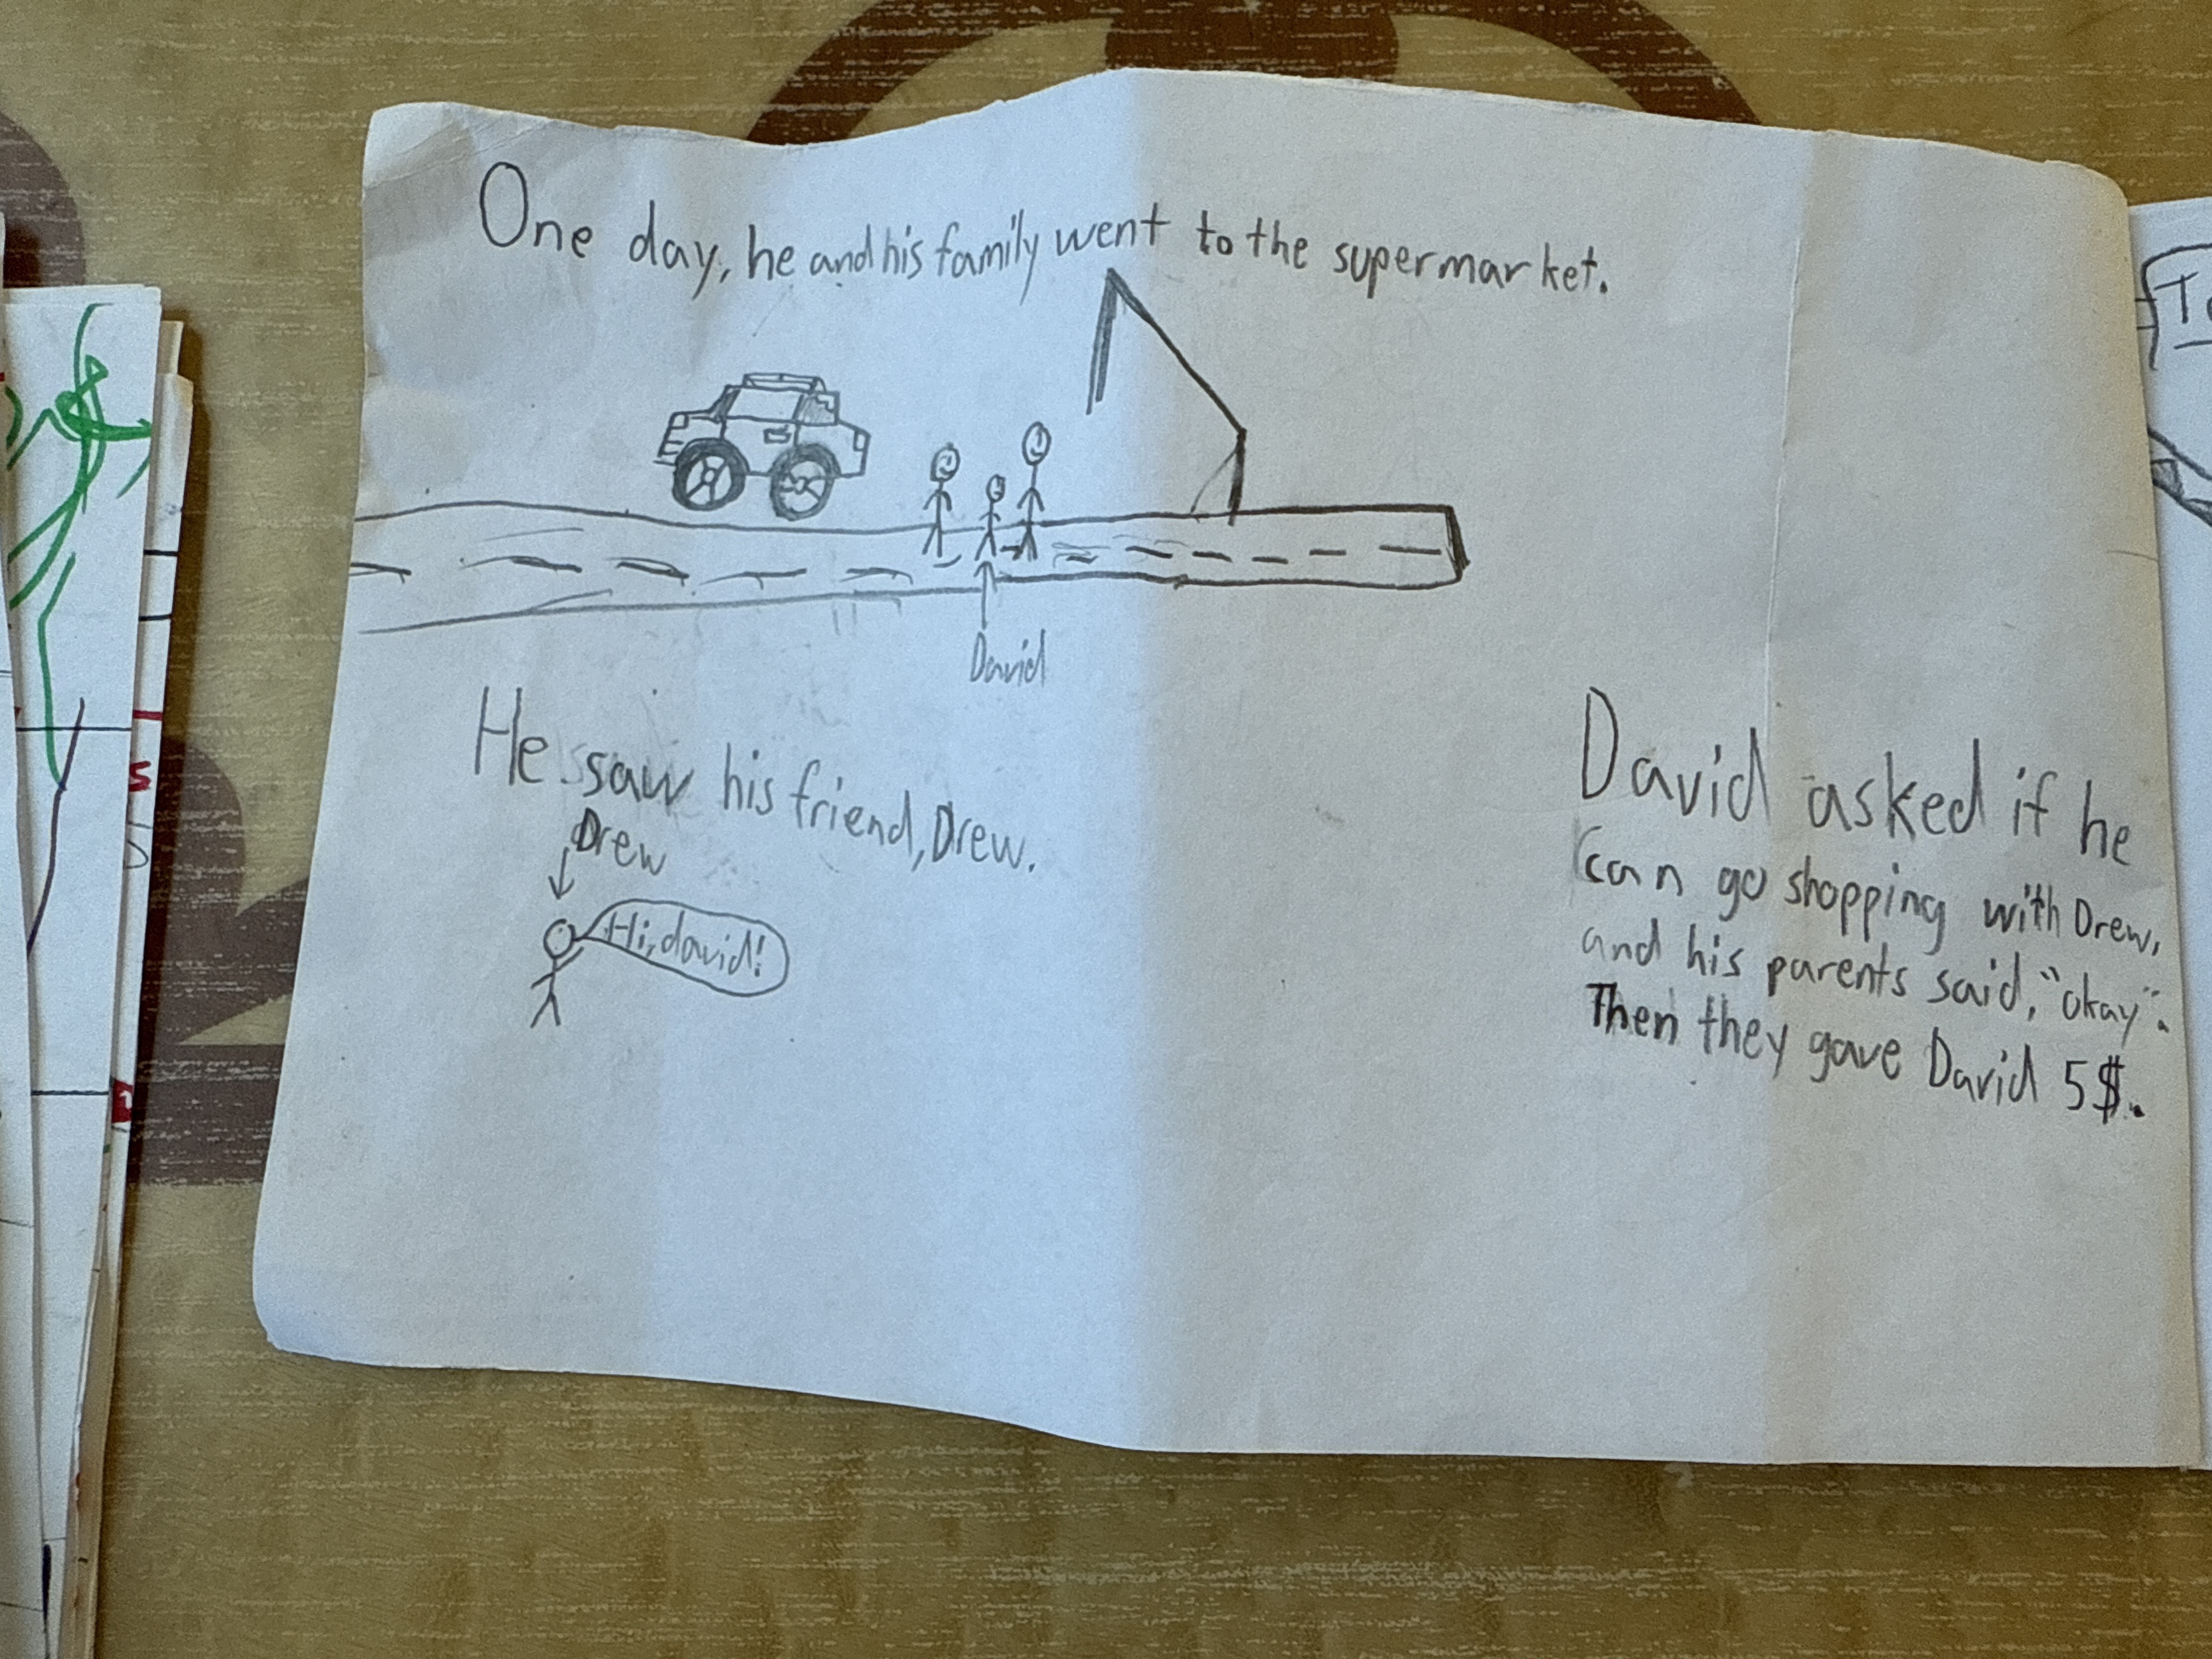 One day, he and his family went to the supermarket.
David
He saw his friend, Drew.
Drew
Hi, david!
David asked if he
can go shopping with Drew,
and his parents said, "okay".
Then they gave David 5$.